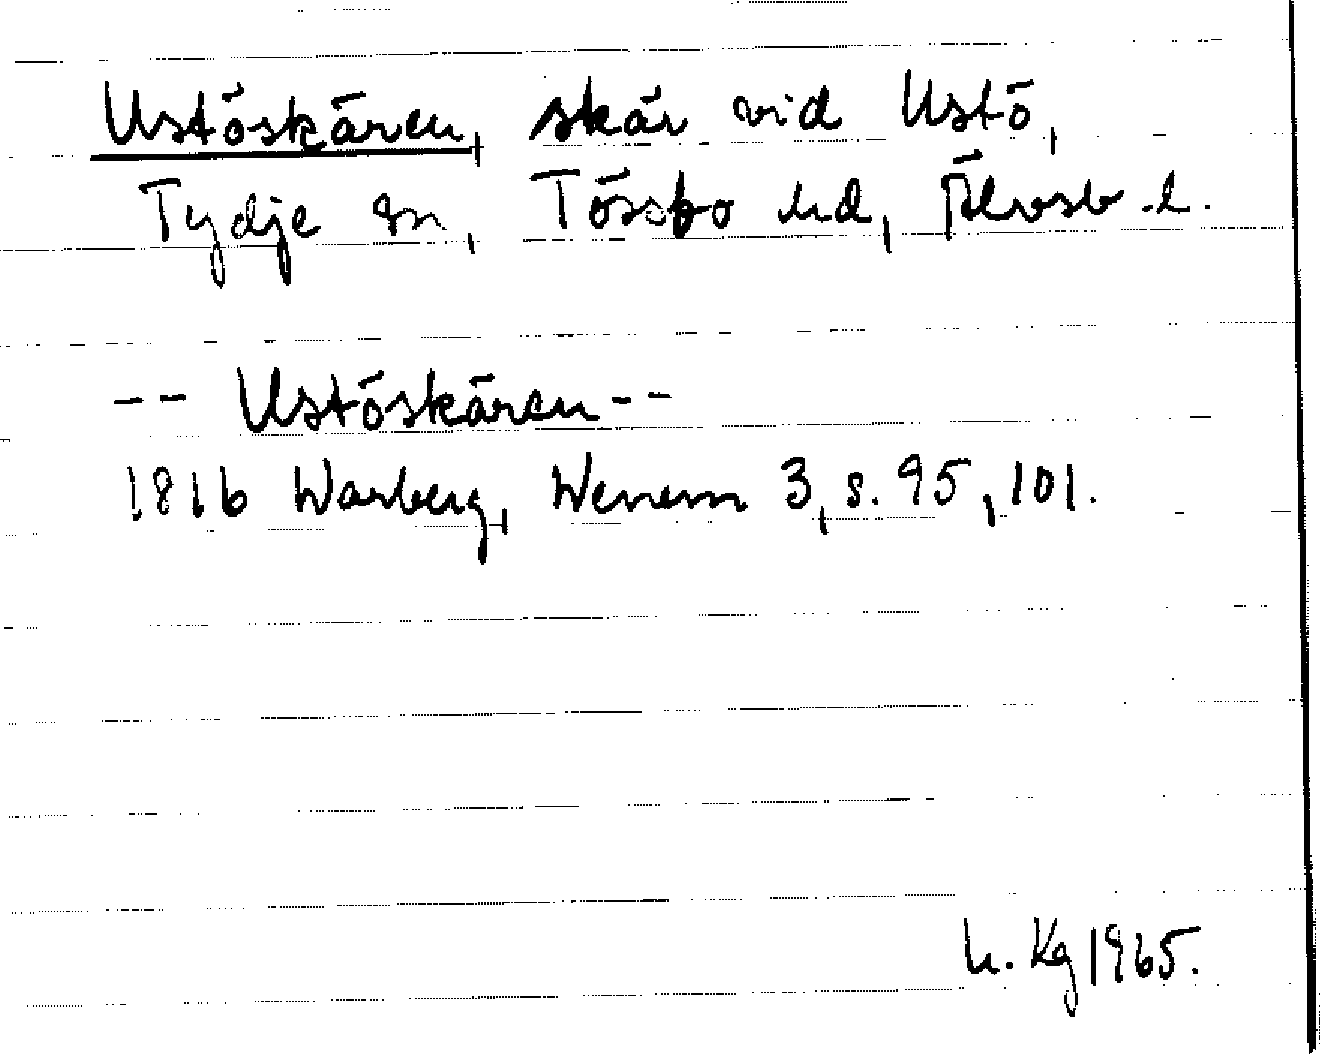 Ustöskären, skär vid Ustö,
Tydje sn, Tössbo hd, Älvsb. l.
-- Ustöskären --
1816 Warberg, Wenern 3, s. 95, 101.
h. Kg 1965.